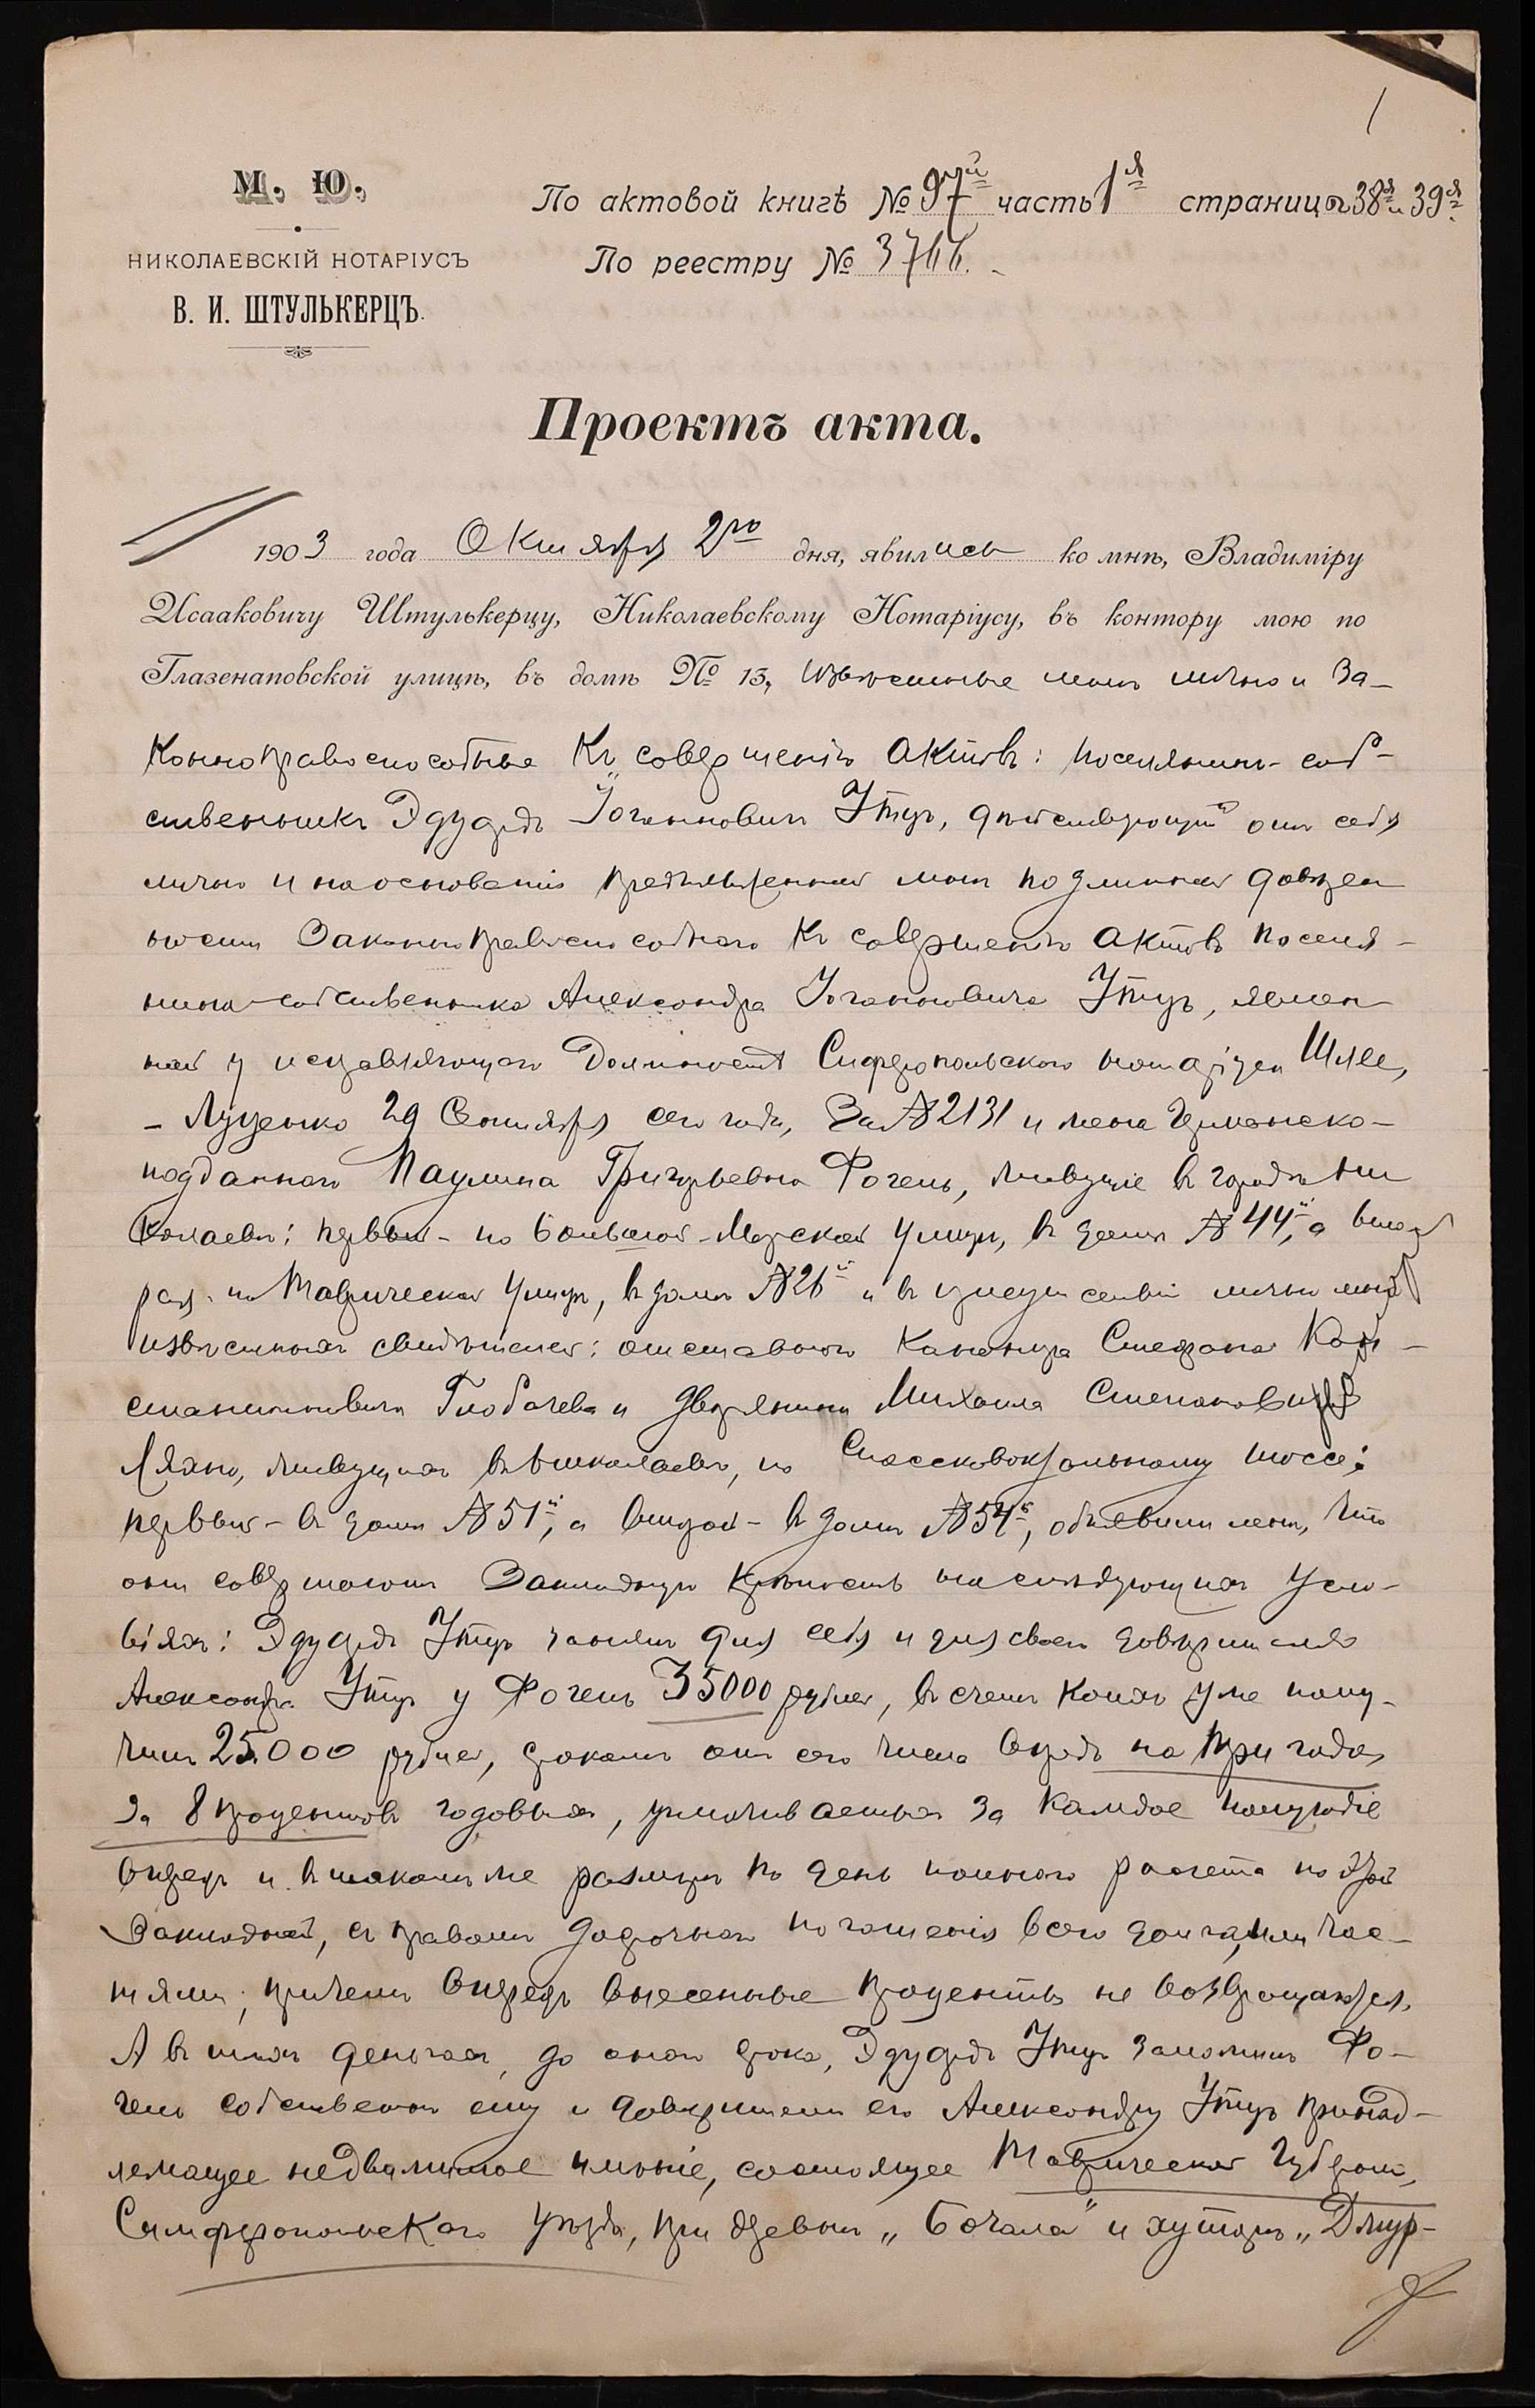 1
М. Ю.
НИКОЛАЕВСКІЙ НОТАРІУСЪ
В. И. ШТУЛЬКЕРЦЪ.
По актовой книгѣ № 97й часть 1я страницы 38я и 39я.
По реестру № 3766.
Проектъ акта.
1903 года Октября 2го дня, явились ко мнѣ, Владиміру
Исааковичу Штулькерцу, Николаевскому Нотаріусу, въ контору мою по
Глазенаповской улицѣ, въ домѣ № 13, извѣстные мнѣ лично и за-
конноправоспособные къ совершенію актовъ: поселянинъ-соб-
ственникъ Эдуардъ Іоганновичъ , дѣйствующій отъ себя
лично и на основаніи предъявленной мнѣ подлинной довѣрен
ности законноправоспособнаго къ совершенію актовъ поселя-
нина-собственника Александра Іоганновича , явлен
ной у исправляющаго должность Симферопольскаго нотаріуса
Луценко 29 Сентября сего года, за № 2131 и жена Германско-
подданнаго Паулина Григорьевна Фогель, живущіе въ городѣ Ни
колаевѣ: первый - по Большой-Морской улицѣ, въ домѣ № 44й, а вто
рая по Таврической улицѣ, въ домѣ № 26й и въ присутствіи лично мнѣ
извѣстныхъ свидѣтелей: отставного Стефана Кон-
стантиновича Глобачева и дворянина Михаила Степановича
Ляхно, живущихъ въ Николаевѣ, по шоссе:
первый - въ домѣ № 51й, а второй - въ домѣ № 54й, объявили мнѣ, что
они совершаютъ закладную крѣпость на слѣдующихъ усло-
віяхъ: Эдуардъ занялъ для себя и для своего довѣрителя
Александра у Фогель 35000 рублей, въ счетъ коихъ уже полу-
чилъ 25000 рублей, срокомъ отъ сего числа впредь на три года,
за 8 процентовъ годовыхъ, уплачиваемыхъ за каждое полугодіе
впередъ и въ такомъ же размѣрѣ по день полнаго расчета по этой
закладной, съ правомъ досрочнаго погашенія всего долга, или час-
тями, причемъ впередъ внесенные проценты не возвращаются.
А въ тѣхъ деньгахъ, до онаго срока, Эдуардъ заложилъ Фо-
гель собственное ему и довѣрителю его Александру принад-
лежащее недвижимое имѣніе, состоящее Таврической Губерніи,
Симферопольскаго уѣзда, при деревнѣ „Бочала" и хуторѣ „Джур-